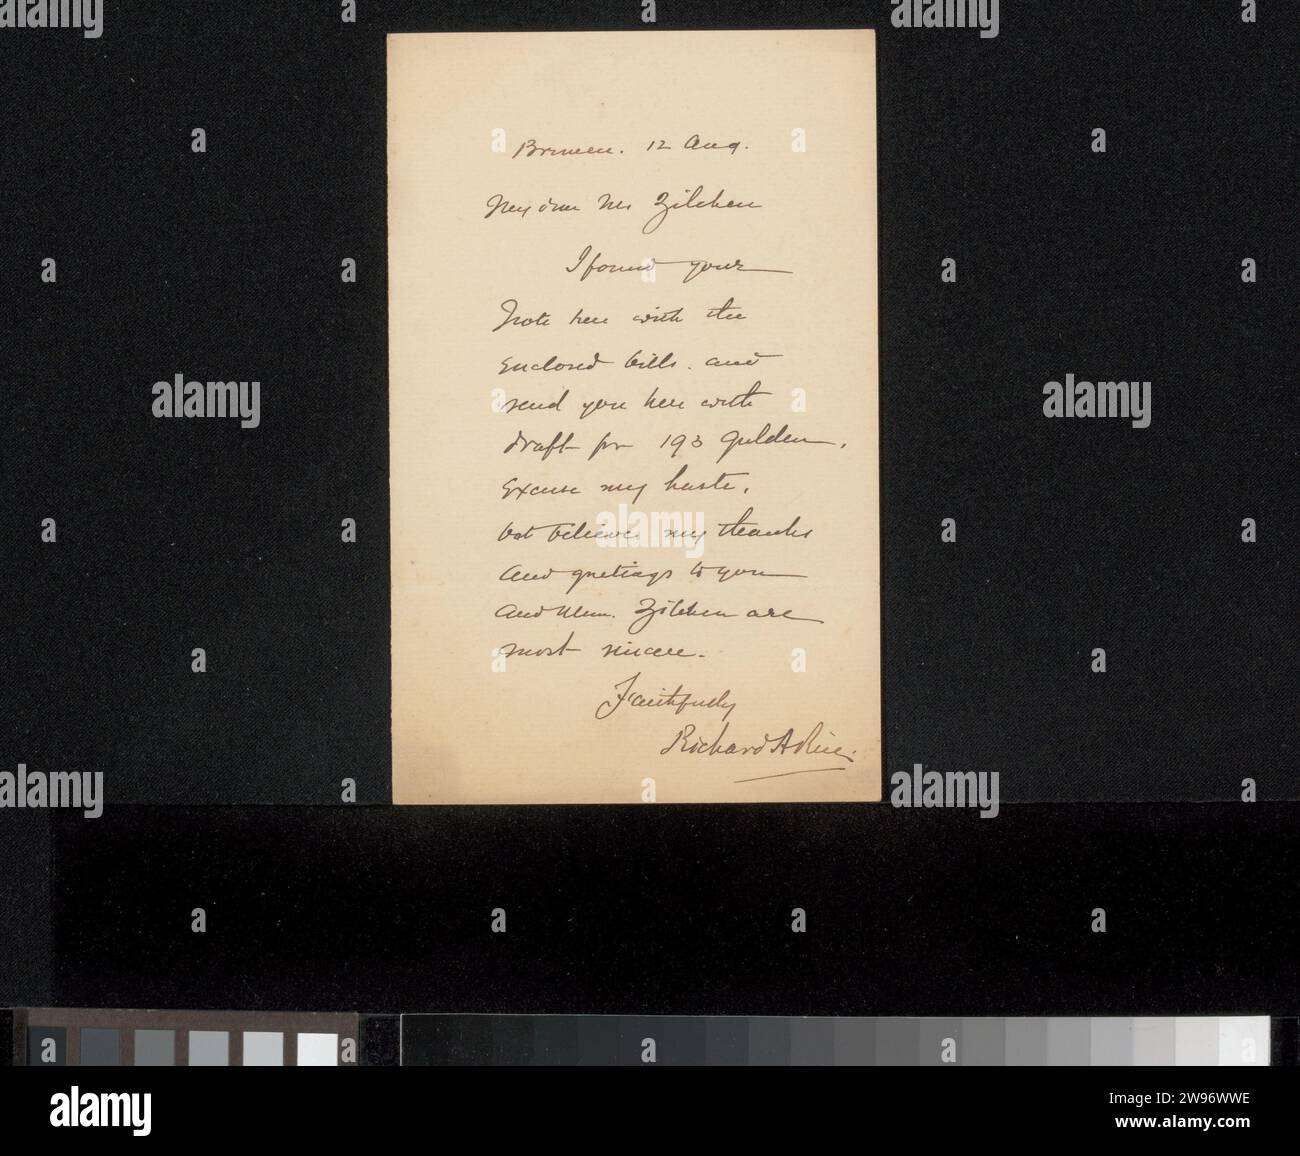 Bremen. 12 Aug.
My dear Mr Zilcken
I found your
Note here with the
enclosed bills. and
send you here with
draft for 193 gulden.
Excuse my haste,
but believe my thanks
and greetings to you
and Mem. Zilcken are
most sincere.
Faithfully
Richard A Rice.
alamy
Image ID: 2W96WWE
www.alamy.com